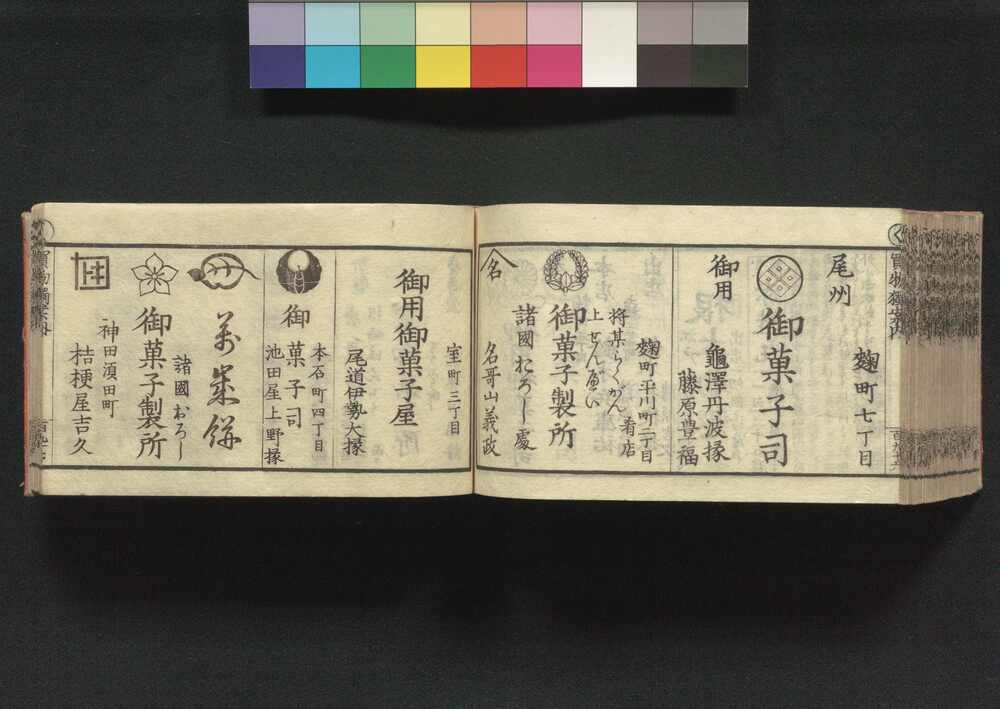 麹町七丁目
尾州
御菓子司
御用
龜澤丹波掾
藤原豊福
麹町平川町二丁目
将棊らくがん看店
上せんべい
御菓子製所
諸國おろし處
名
名哥山義政
室町三丁目
御用御菓子屋
尾道伊勢大掾
本石町四丁目
御菓子司
池田屋上野掾
諸國おろし
御菓子製所
神田須田町
桔梗屋吉久